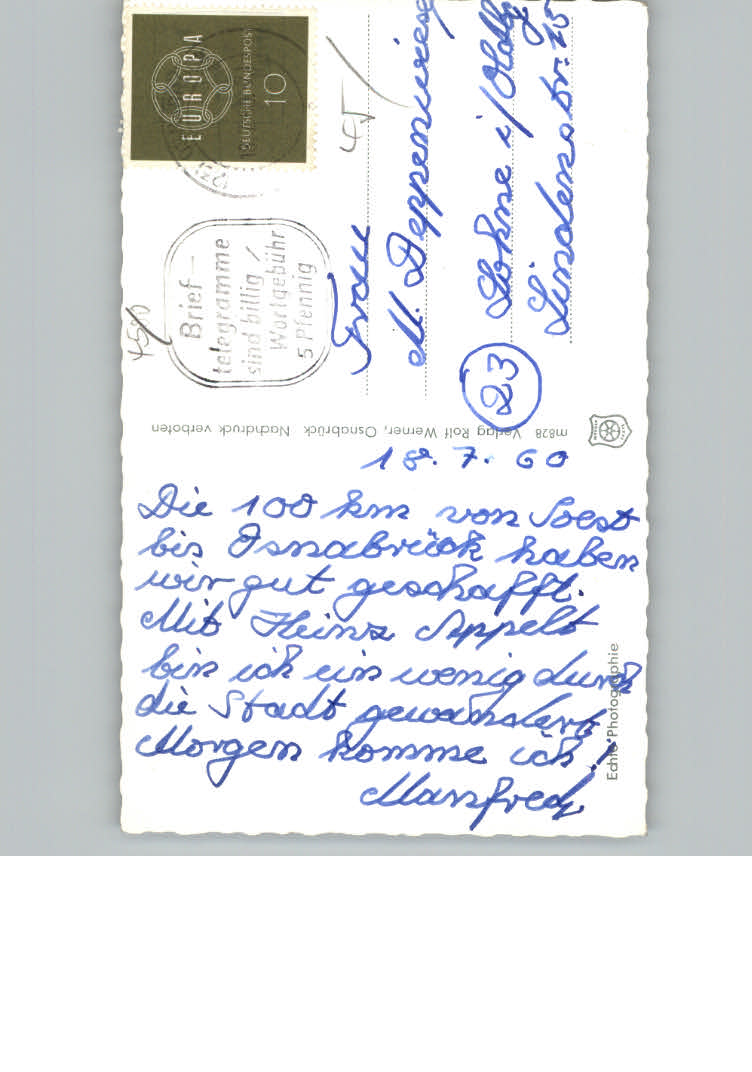 18. 7. 60
Die 100 km von Soest
bis Osnabrück haben
wir gut geschafft.
Mit Heinz Appelt
bin ich ein wenig durch
die Stadt gewandert.
Morgen komme ich!
Manfred
EUROPA
DEUTSCHE BUNDESPOST
10
Brief-
telegramme
sind billig /
Wortgebühr
5 Pfennig
45/
4580
Frau
M. Deppenwiese
(23) Lohne i/Oldbg
Lindenstr. 75
m828 Verlag Rolf Werner, Osnabrück Nachdruck verboten
Echte Photographie